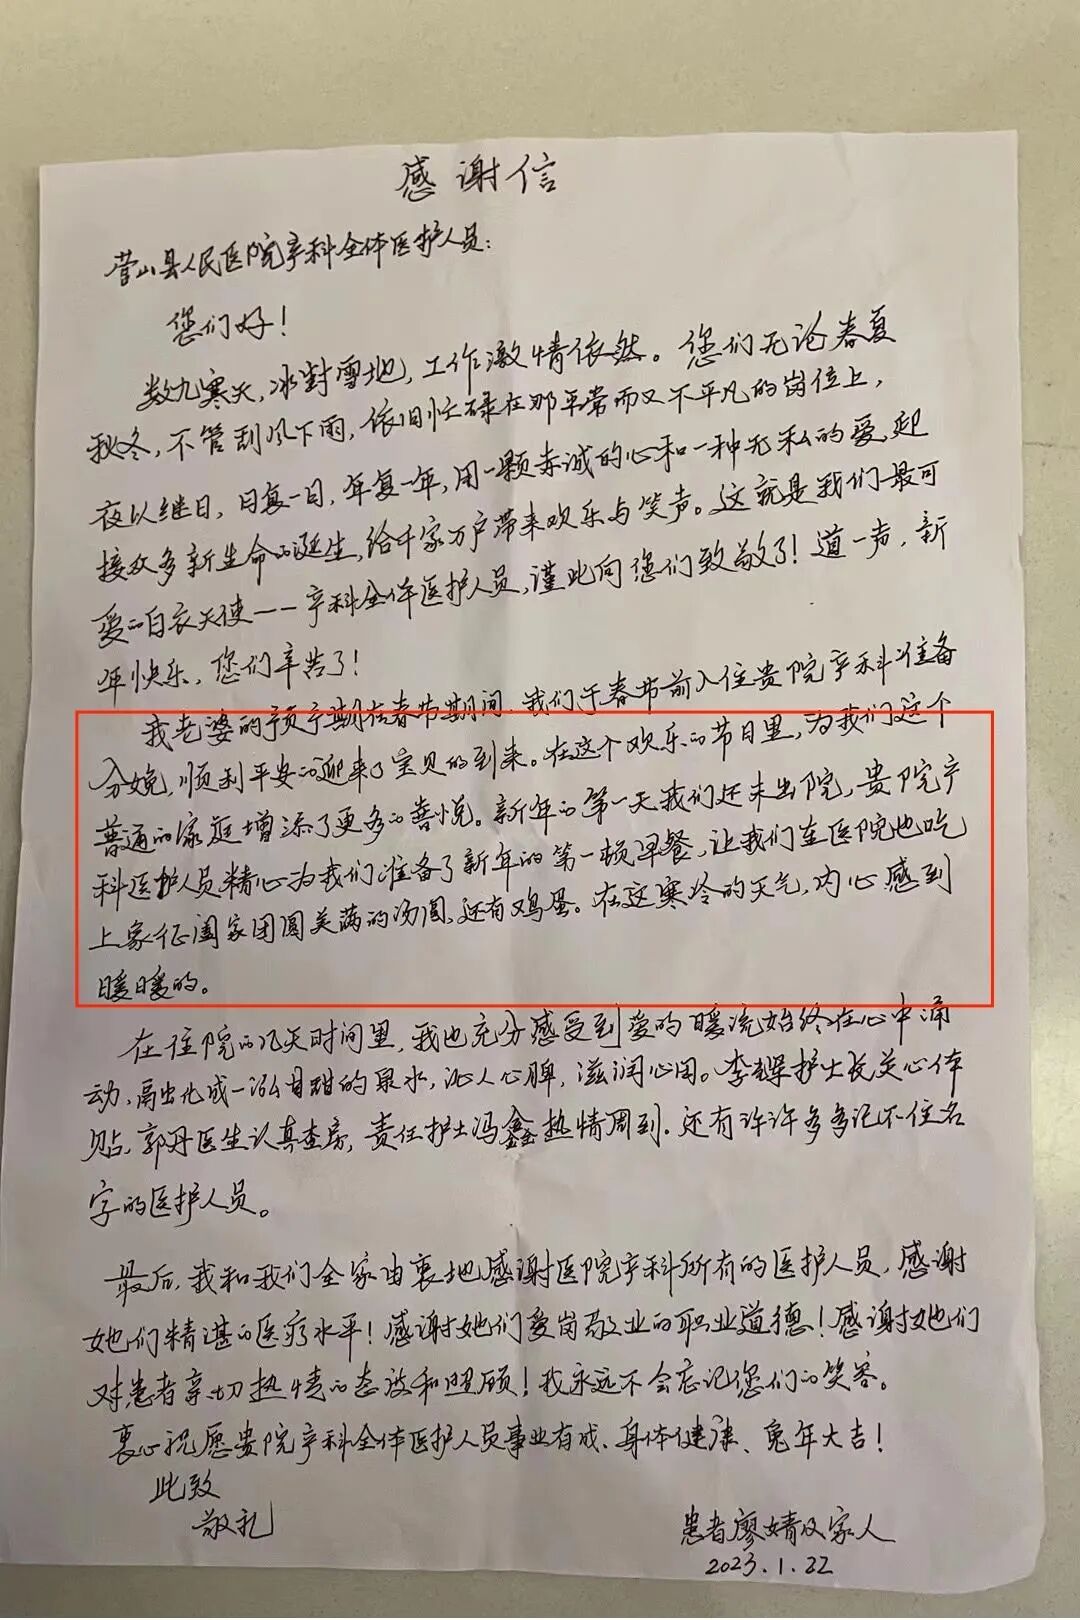 感谢信
营山县人民医院产科全体医护人员：
您们好！
数九寒天，冰封雪地，工作激情依然。您们无论春夏
秋冬，不管刮风下雨，依旧忙碌在那平常而又不平凡的岗位上，
夜以继日，日复一日，年复一年，用一颗赤诚的心和一种无私的爱，迎
接众多新生命的诞生，给千家万户带来欢乐与笑声。这就是我们最可
爱的白衣天使——产科全体医护人员，谨此向您们致敬了！道一声，新
年快乐，您们辛苦了！
我老婆的预产期在春节期间，我们于春节前入住贵院产科准备
分娩，顺利平安的迎来了宝贝的到来。在这个欢乐的节日里，为我们这个
普通的家庭增添了更多的喜悦。新年的第一天我们还未出院，贵院产
科医护人员精心为我们准备了新年的第一顿早餐，让我们在医院也吃
上象征阖家团圆美满的汤圆，还有鸡蛋。在这寒冷的天气，内心感到
暖暖的。
在住院的几天时间里，我也充分感受到爱的暖流始终在心中涌
动，高出化成一泓甘甜的泉水，沁人心脾，滋润心田。李翠护士长关心体
贴，郭丹医生认真查房，责任护士冯鑫热情周到，还有许许多多记不住名
字的医护人员。
最后，我和我们全家由衷地感谢医院产科所有的医护人员，感谢
她们精湛的医疗水平！感谢她们爱岗敬业的职业道德！感谢她们
对患者亲切热情的态度和照顾！我永远不会忘记您们的笑容。
衷心祝愿贵院产科全体医护人员事业有成、身体健康、兔年大吉！
此致
敬礼
患者廖婧及家人
2023.1.22